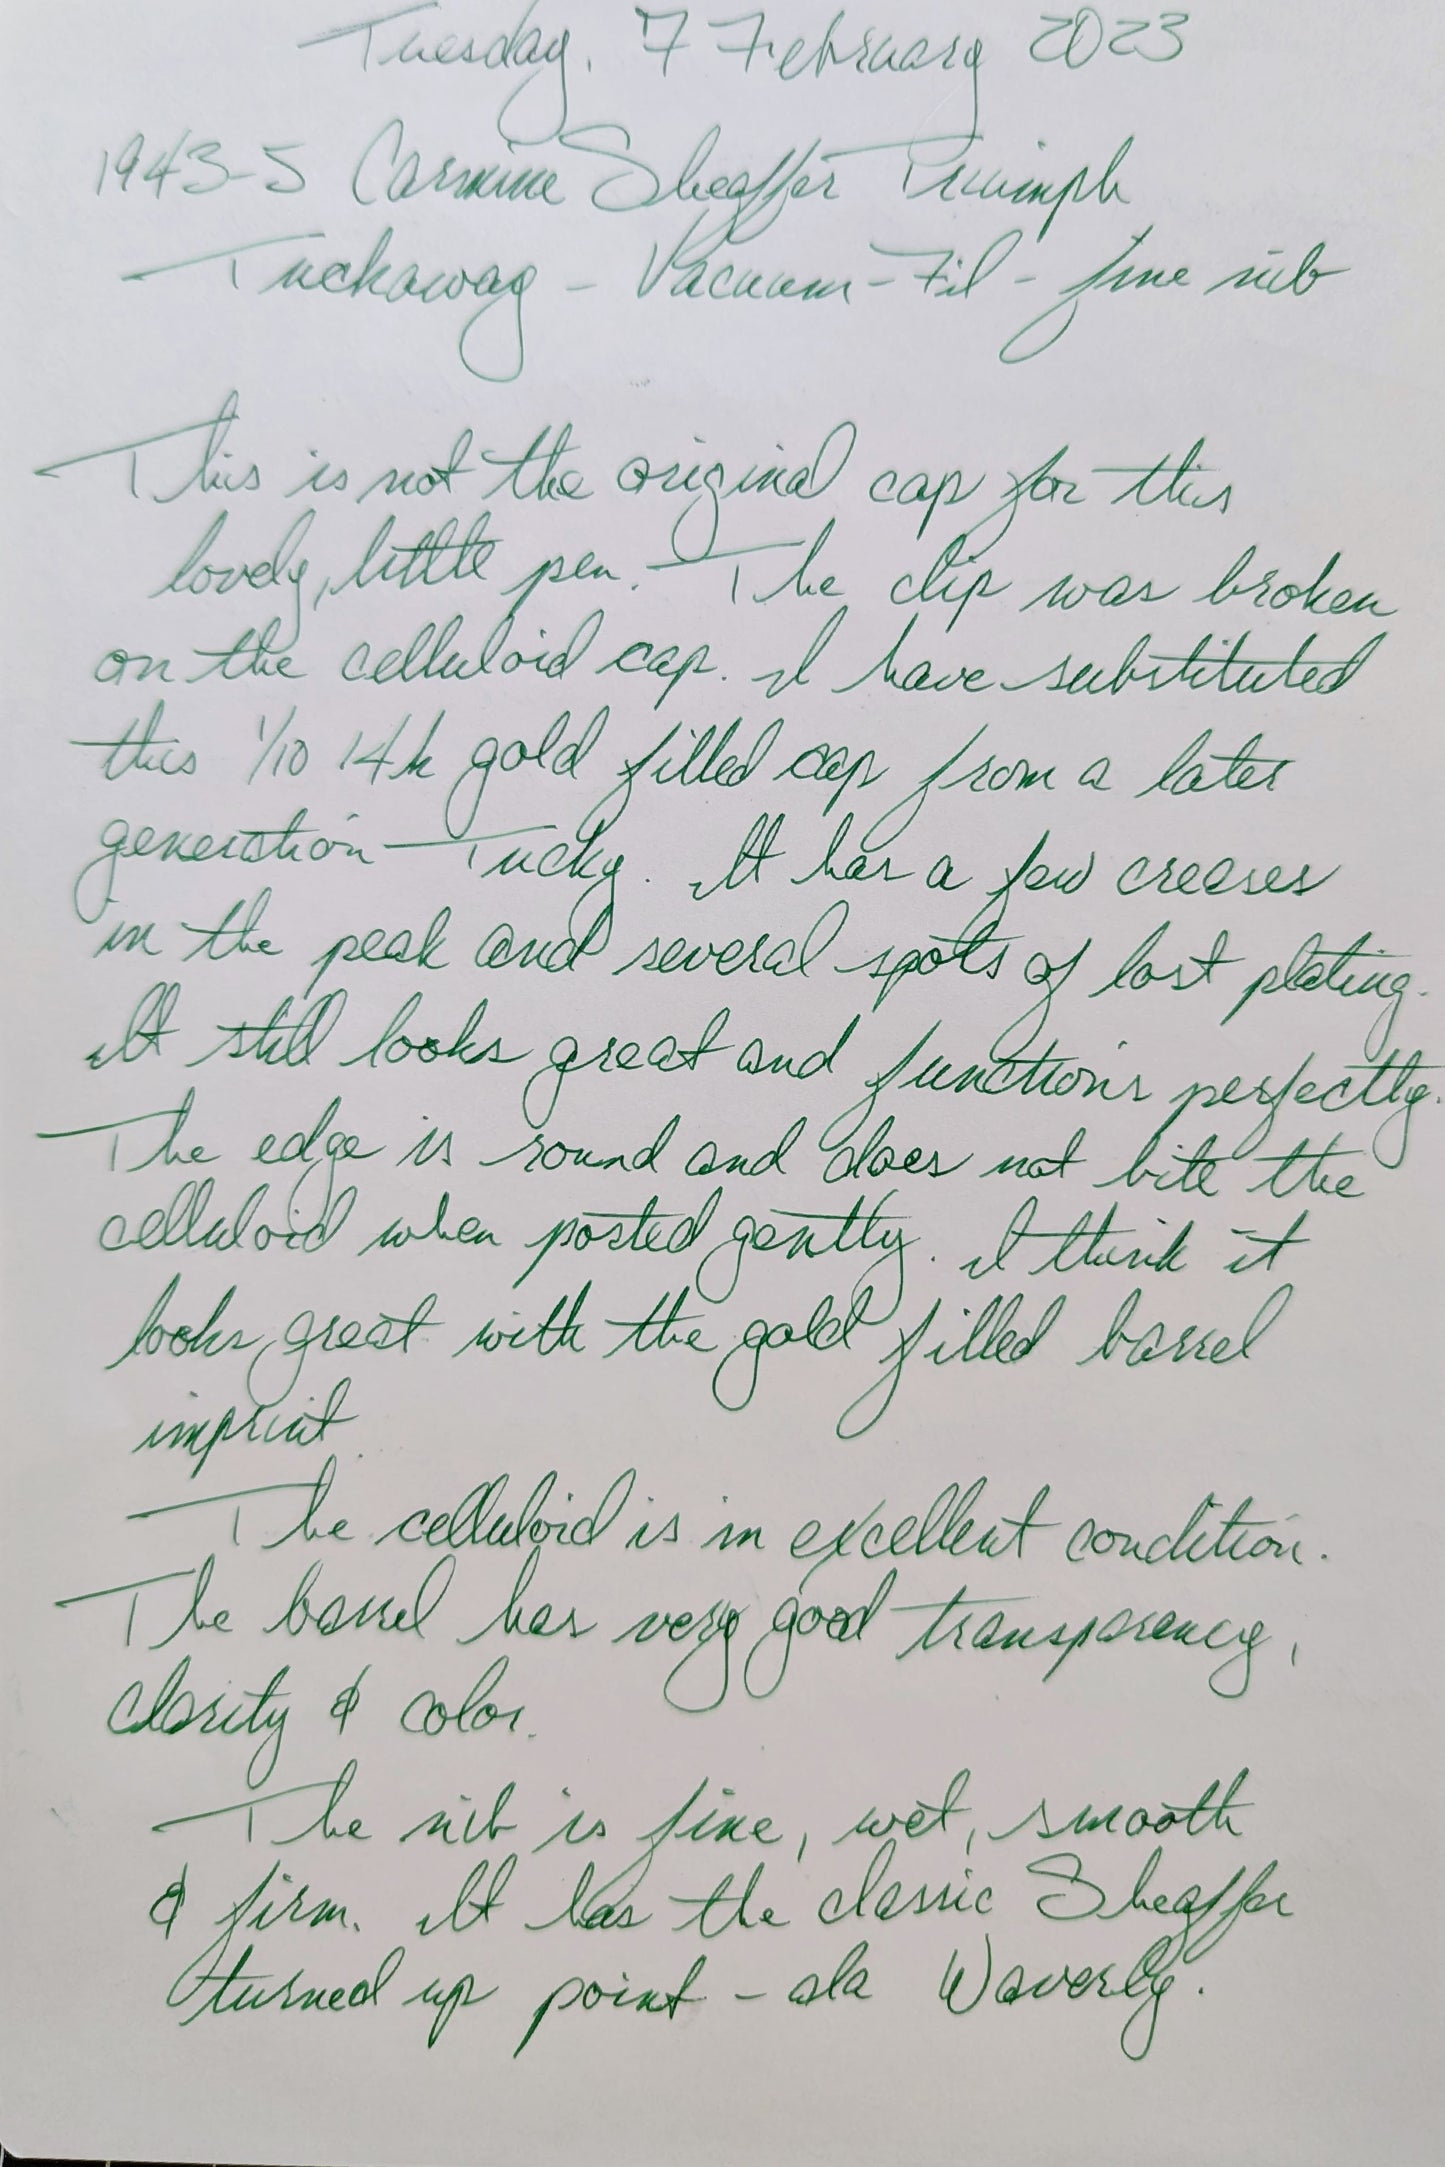 Tuesday, 7 February 2023
1943-5 Carmine Sheaffer Triumph
Tuckaway - Vacuum-Fil - fine nib
This is not the original cap for this
lovely, little pen. The clip was broken
on the celluloid cap. I have substituted
this 1/10 14k gold filled cap from a later
generation Tucky. It has a few creases
in the peak and several spots of lost plating.
It still looks great and functions perfectly.
The edge is round and does not bite the
celluloid when posted gently. I think it
looks great with the gold filled barrel
imprint.
The celluloid is in excellent condition.
The barrel has very good transparency,
clarity & color.
The nib is fine, wet, smooth
& firm. It has the classic Sheaffer
turned up point - ala Waverly.